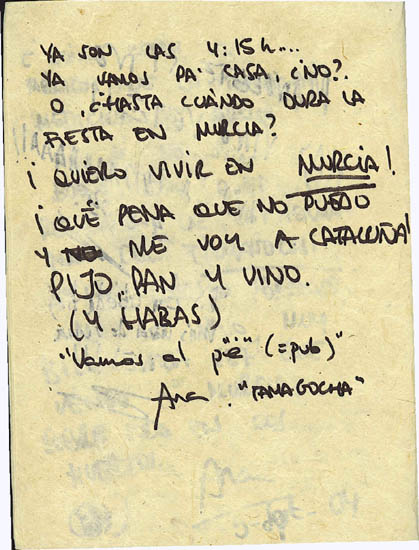 YA SON LAS 4:15 h....
YA VAMOS PA' CASA, ¿NO?.
O ¿HASTA CUÁNDO DURA LA
FIESTA EN MURCIA?
¡ QUIERO VIVIR EN MURCIA!
¡ QUÉ PENA QUE NO PUEDO
Y ME VOY A CATALUÑA!
PIJO, PAN Y VINO.
(Y HABAS)
"Vamos al p'ë" (=pub)"
Ana. "TAMAGOCHA"